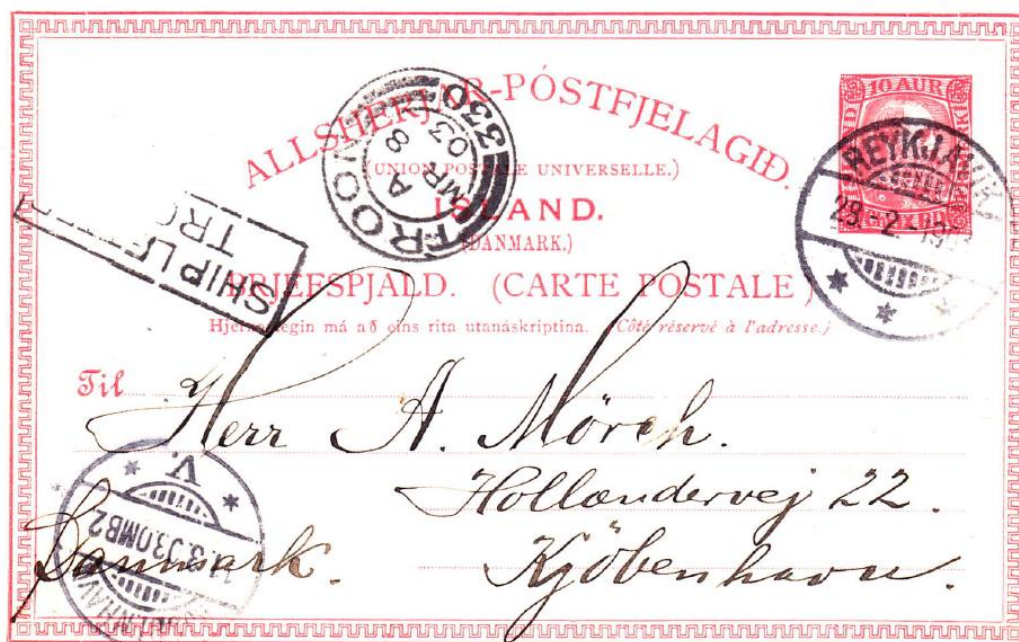 ALLSHERJNR-PÓSTFJELAGIÐ.
(UNION POSTALE UNIVERSELLE.)
ÍSLAND.
(DANMARK.)
BRJEFSPJALD. (CARTE POSTALE)
Hjerna megin má að eins rita utanáskriptina. (Côté réservé à l'adresse.)
10 AUR
REYKJAVIK
28.-2.-190
TROON
330
A
MR 8
03
SHIP LE
TRO
Til Herr A. Mörch.
Hollændervej 22.
Kjöbenhavn.
Danmark.
V.